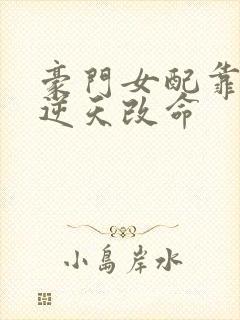 豪門女配靠
逆天改命
小島岸水